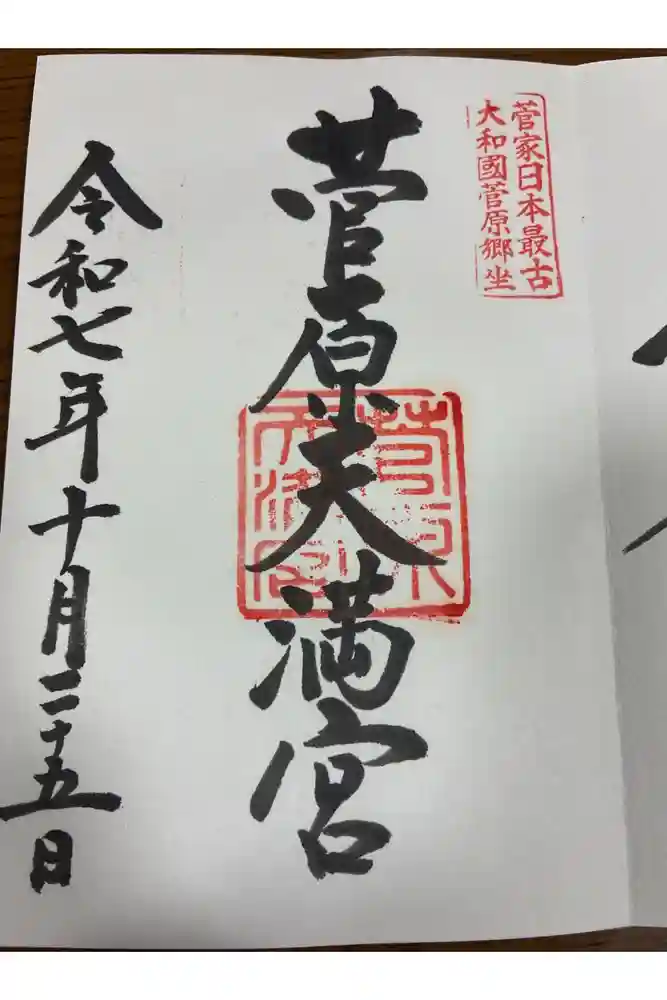 菅家日本最古
大和國菅原郷坐
菅原天満宮
菅原
天満宮
令和七年十月二十五日